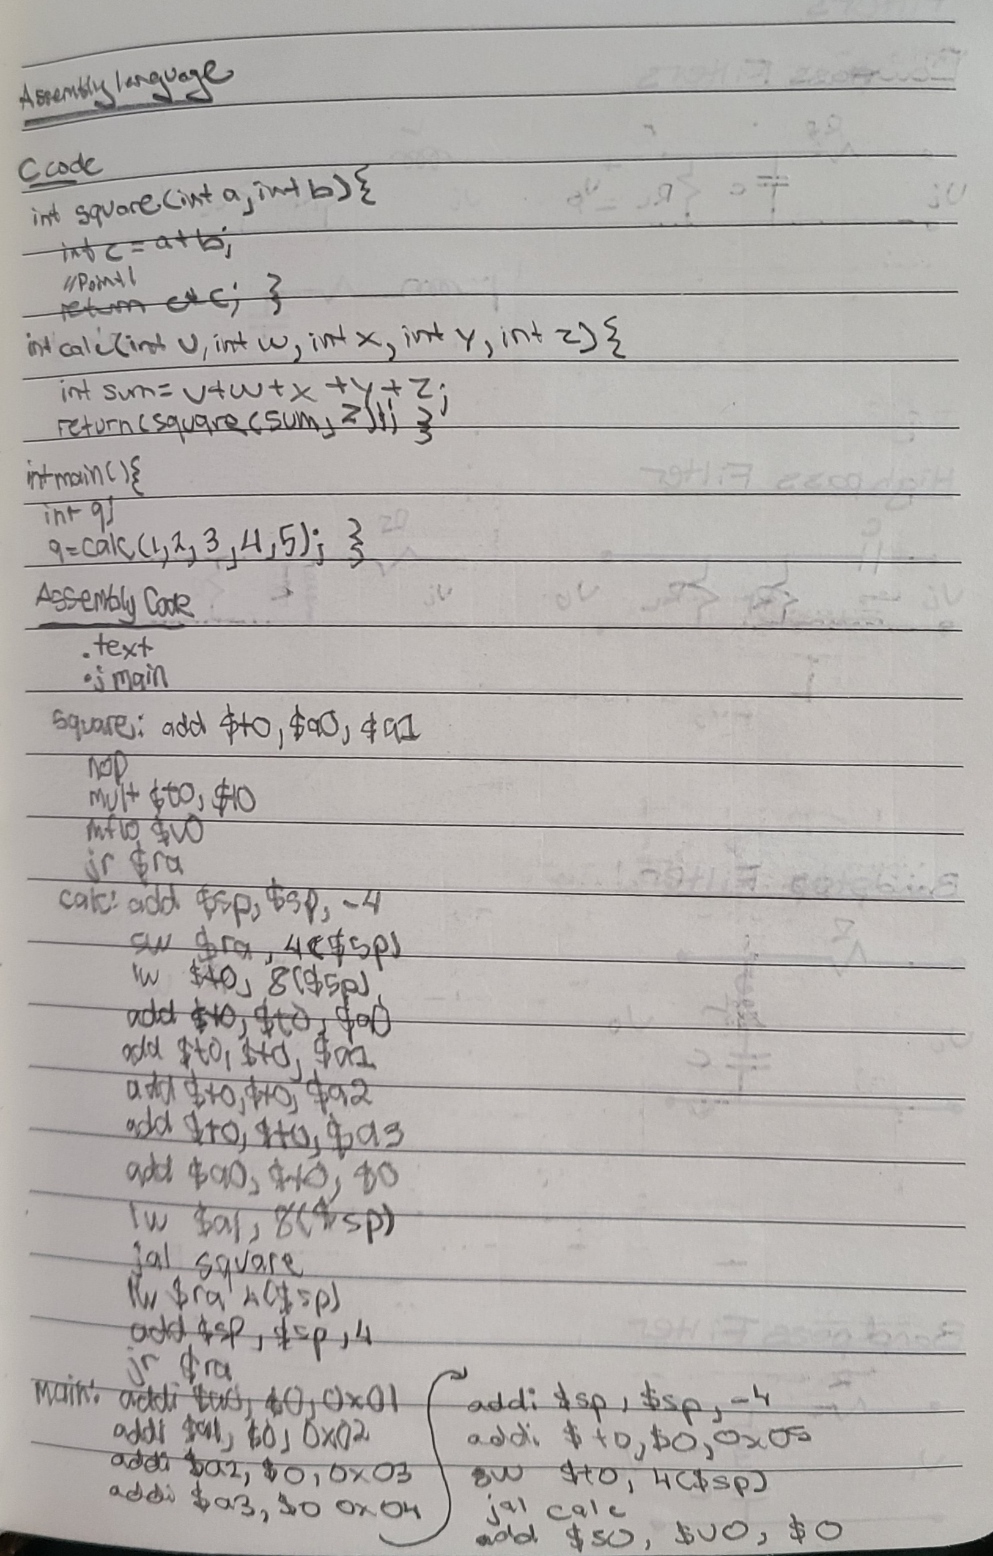 Assembly language
C code
int square(int a, int b){
int c = a+b;
//Point1
return c*c; }
int calc(int v, int w, int x, int y, int z){
int sum= v+w+x+y+z;
return(square(sum, z)); }
int main(){
int q;
q=calc(1,2,3,4,5); }
Assembly Code
.text
.j main
square: add $t0, $a0, $a1
nop
mult $t0, $t0
mflo $v0
jr $ra
calc: add $sp, $sp, -4
sw $ra, 4($sp)
lw $t0, 8($sp)
add $t0, $t0, $a0
add $t0, $t0, $a1
add $t0, $t0, $a2
add $t0, $t0, $a3
add $a0, $t0, $0
lw $a1, 8($sp)
jal square
lw $ra 4($sp)
add $sp, $sp, 4
jr $ra
main: addi $a0, $0, 0x01
addi $a1, $0, 0x02
addi $a2, $0, 0x03
addi $a3, $0 0x04
addi $sp, $sp, -4
addi $t0, $0, 0x05
sw $t0, 4($sp)
jal calc
add $s0, $v0, $0